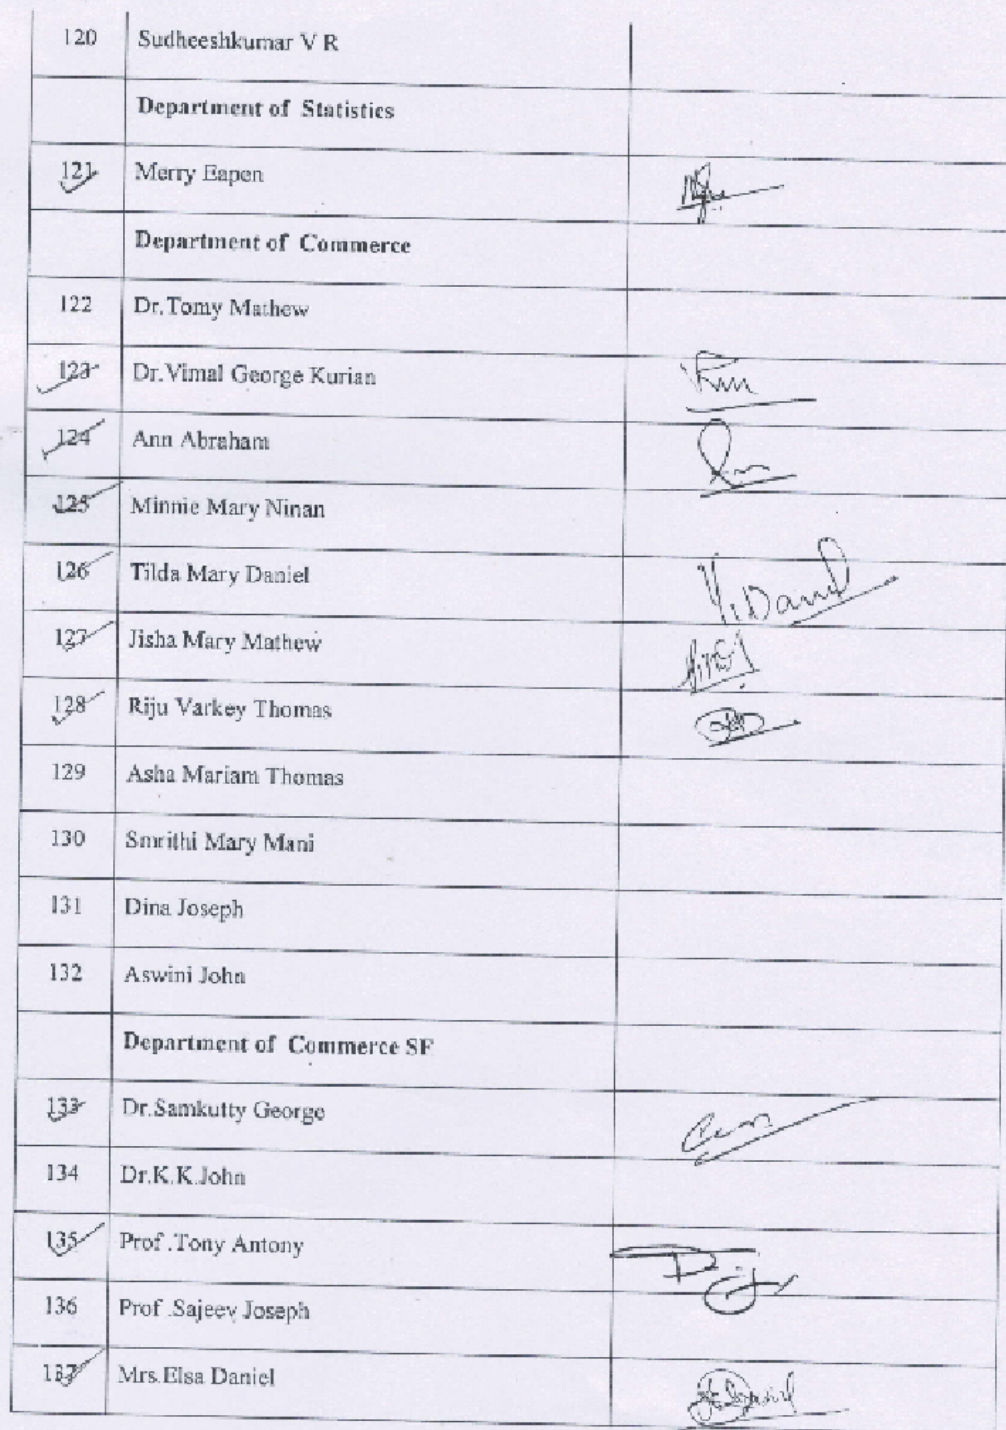 120 Sudheeshkumar V R
Department of Statistics
121 Merry Eapen
Department of Commerce
122 Dr.Tomy Mathew
123 Dr.Vimal George Kurian
124 Ann Abraham
125 Minnie Mary Ninan
126 Tilda Mary Daniel Daniel
127 Jisha Mary Mathew
128 Riju Varkey Thomas
129 Asha Mariam Thomas
130 Smrithi Mary Mani
131 Dina Joseph
132 Aswini John
Department of Commerce SF
133 Dr.Samkutty George
134 Dr.K.K.John
135 Prof .Tony Antony
136 Prof .Sajeev Joseph
137 Mrs.Elsa Daniel